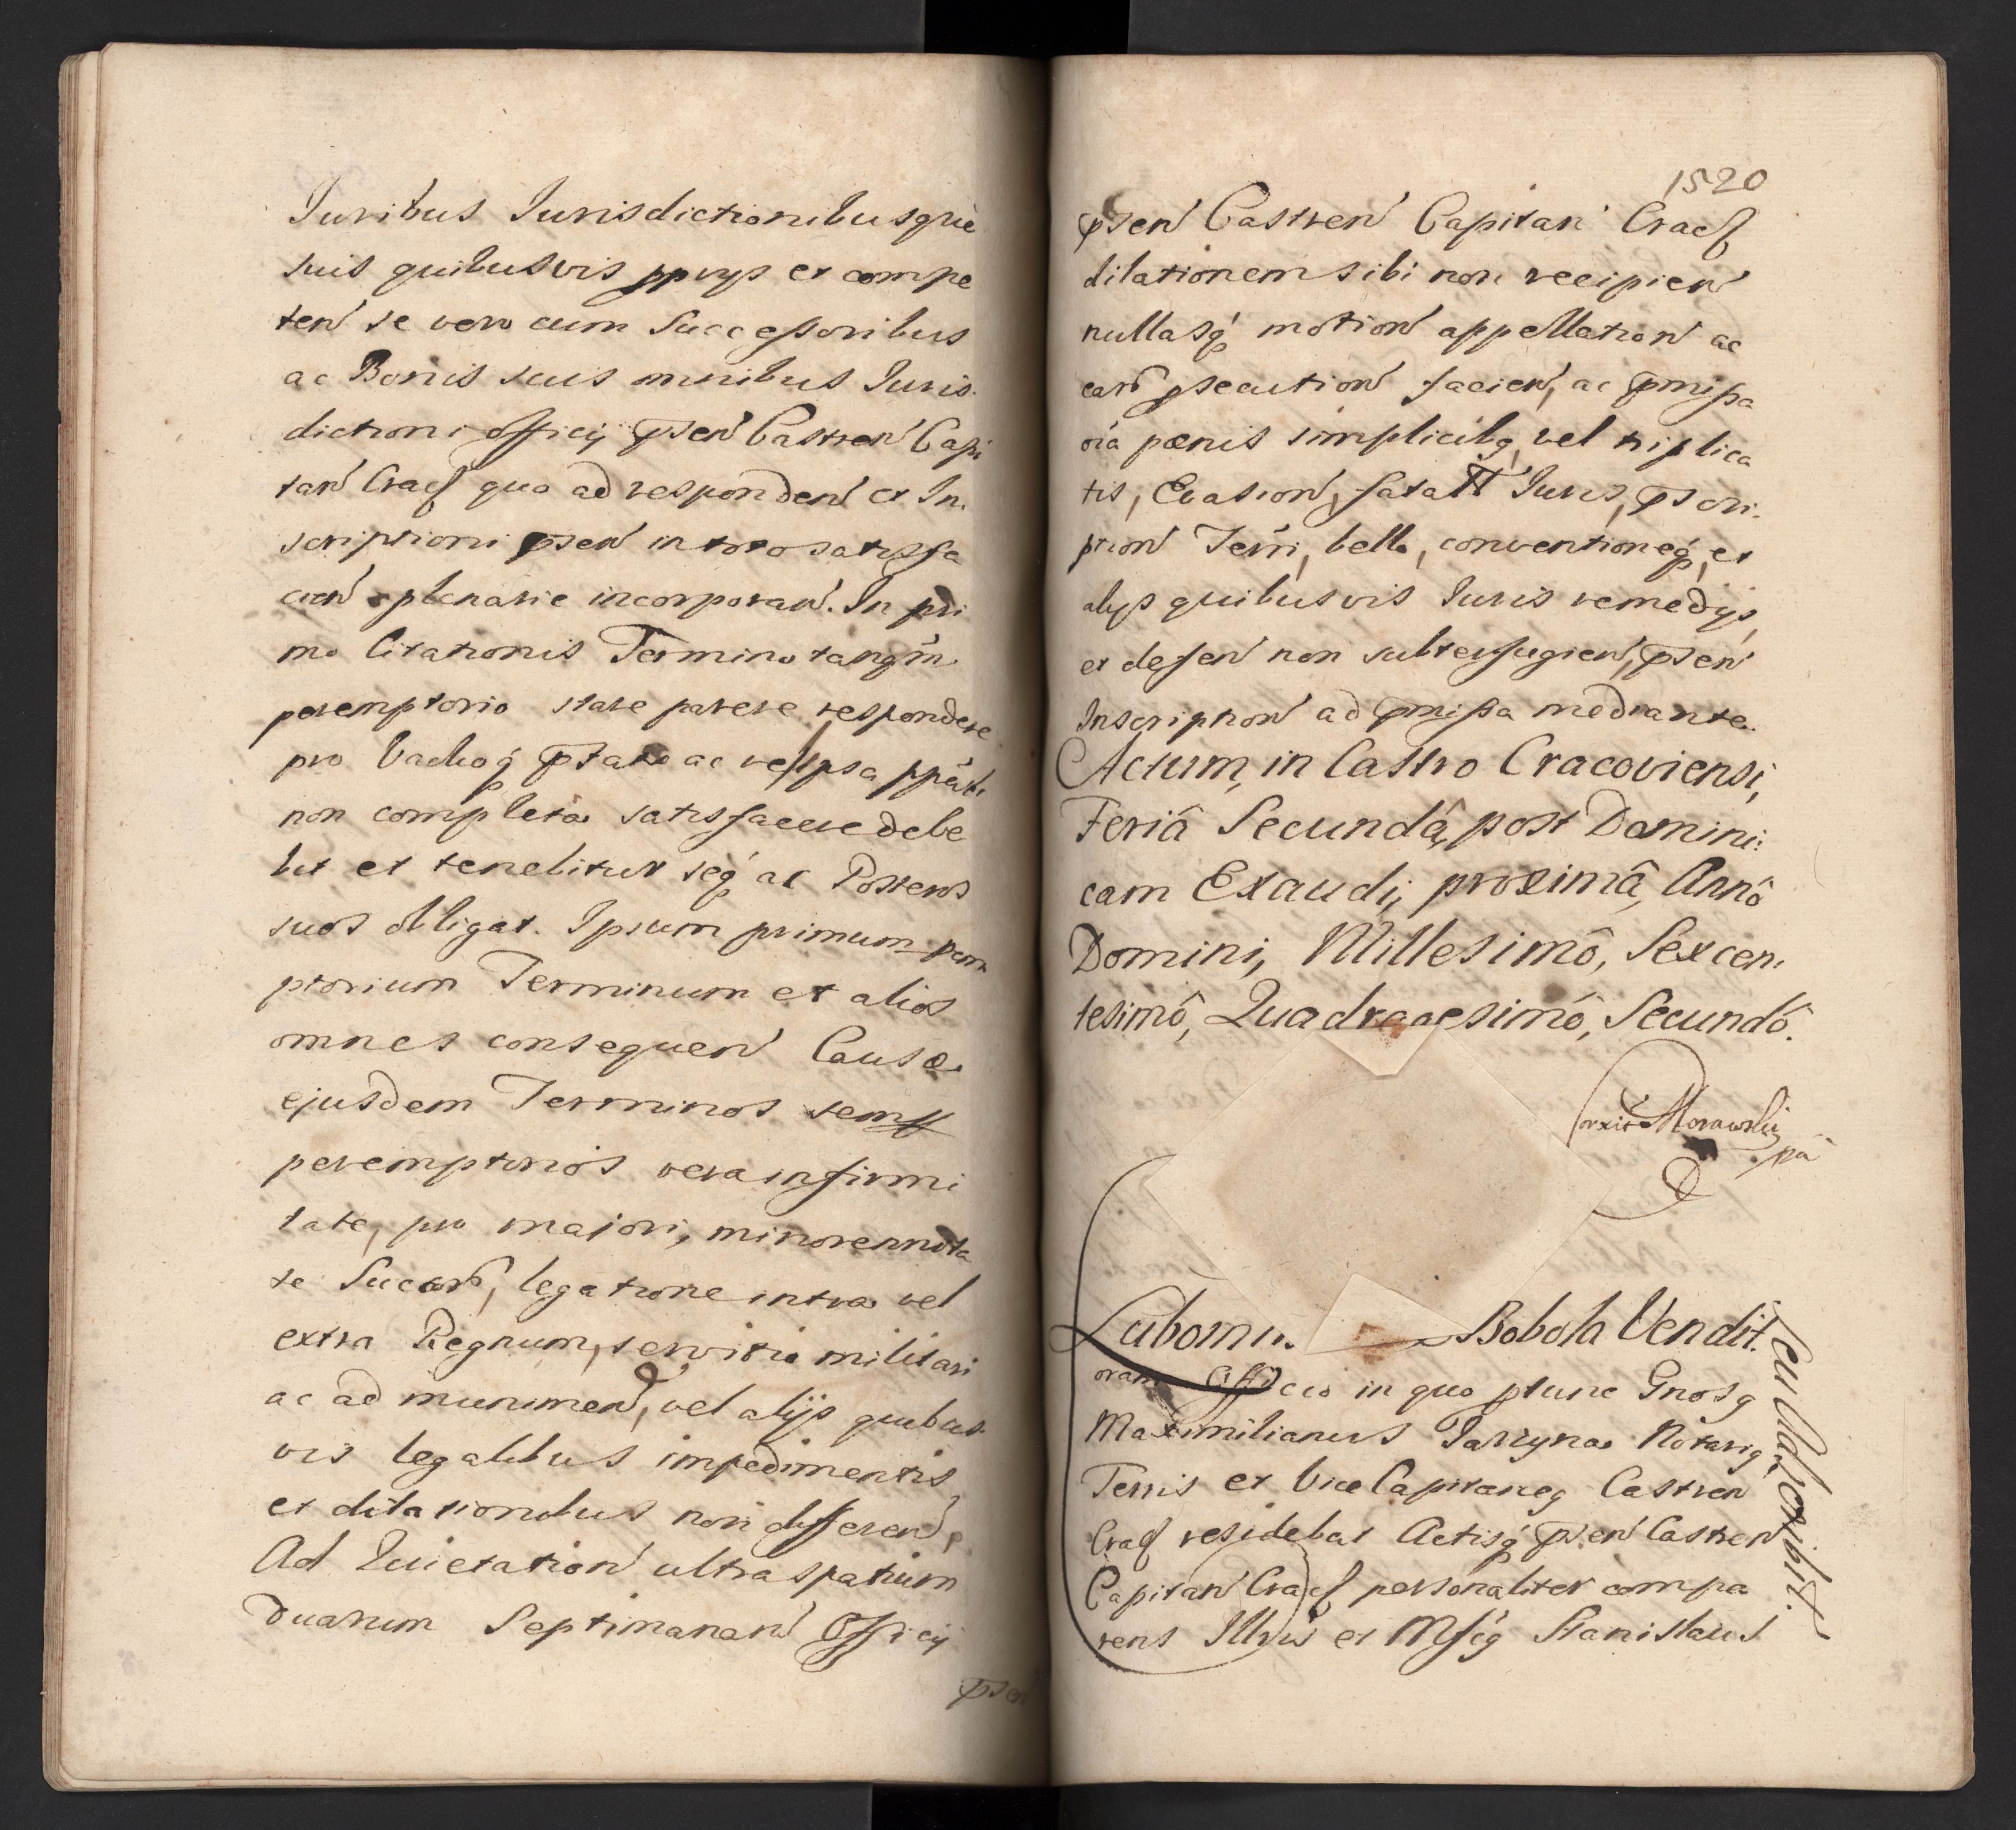 Juribus Jurisdictionibusque
suis quibusvis ppriys et compe
ten se vero cum Successoribus
ac Bonis suis omnibus Juris
dictioni officij psen Castren Capi
tan Crac quo ad responden et In
scriptioni psen in toto satisfa
cien plenarie incorporan. In pri
mo Citationis Termino tanqm
peremptorio stare parere respondere
pro Vadioq ptato ac re ipsa
non completa satisfacere debe
bit et tenebitur seq ac Posteros
suos obligat. Ipsum primum perem
ptorium Terminum et alios
omnes consequen Causæ
ejusdem Terminos tem
peremptorios vera infirmi
tate, pro majori, minorennita
te Succor, legatione intra vel
extra Regnum, servitio militari
ac ad munimen, vel alijs quibus
vis legalibus impedimentis,
et dilationibus non differen,
Ad Quietation ultra spatium
Duarum Septimanar Officij
psen
1520
psen Castren Capitan Crac
dilationem sibi non recipien
nullasq motion appellation ac
ear psecution facien, ac pmissa
oia pœnis simplicibq vel triplica
tis, Evasion, fatali Juris, pscri
ption Terri, belli, conventioneq, et
alijs quibusvis Juris remedijs
et defen non subterfugien, psen
Inscription ad pmissa mediante.
Actum, in Castro Cracoviensi,
Feriâ Secundâ, post Domini
cam Exaudi, proximâ, Annô
Domini, Millesimô, Sexcen
tesimô, Quadragesimô, Secundô.
Corxit Morawski
pā
Lubomir. Bobola Vendit.
oram Officio in quo ptunc Gnosq
Maximilianus Jarzyna Notariq
Terris et Vice Capitaneq Castren
Crac residebat Actisq psen Castren
Capitan Crac personaliter compa
rens Illris et Mficq Stanislaus